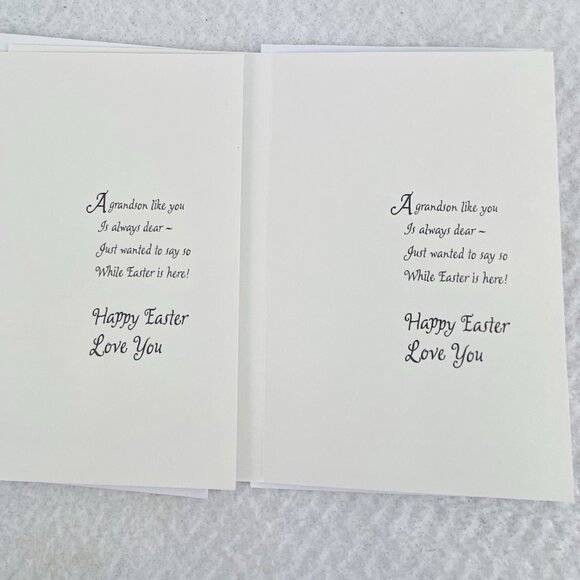 A grandson like you
Is always dear ~
Just wanted to say so
While Easter is here!
Happy Easter
Love You
A grandson like you
Is always dear ~
Just wanted to say so
While Easter is here!
Happy Easter
Love You